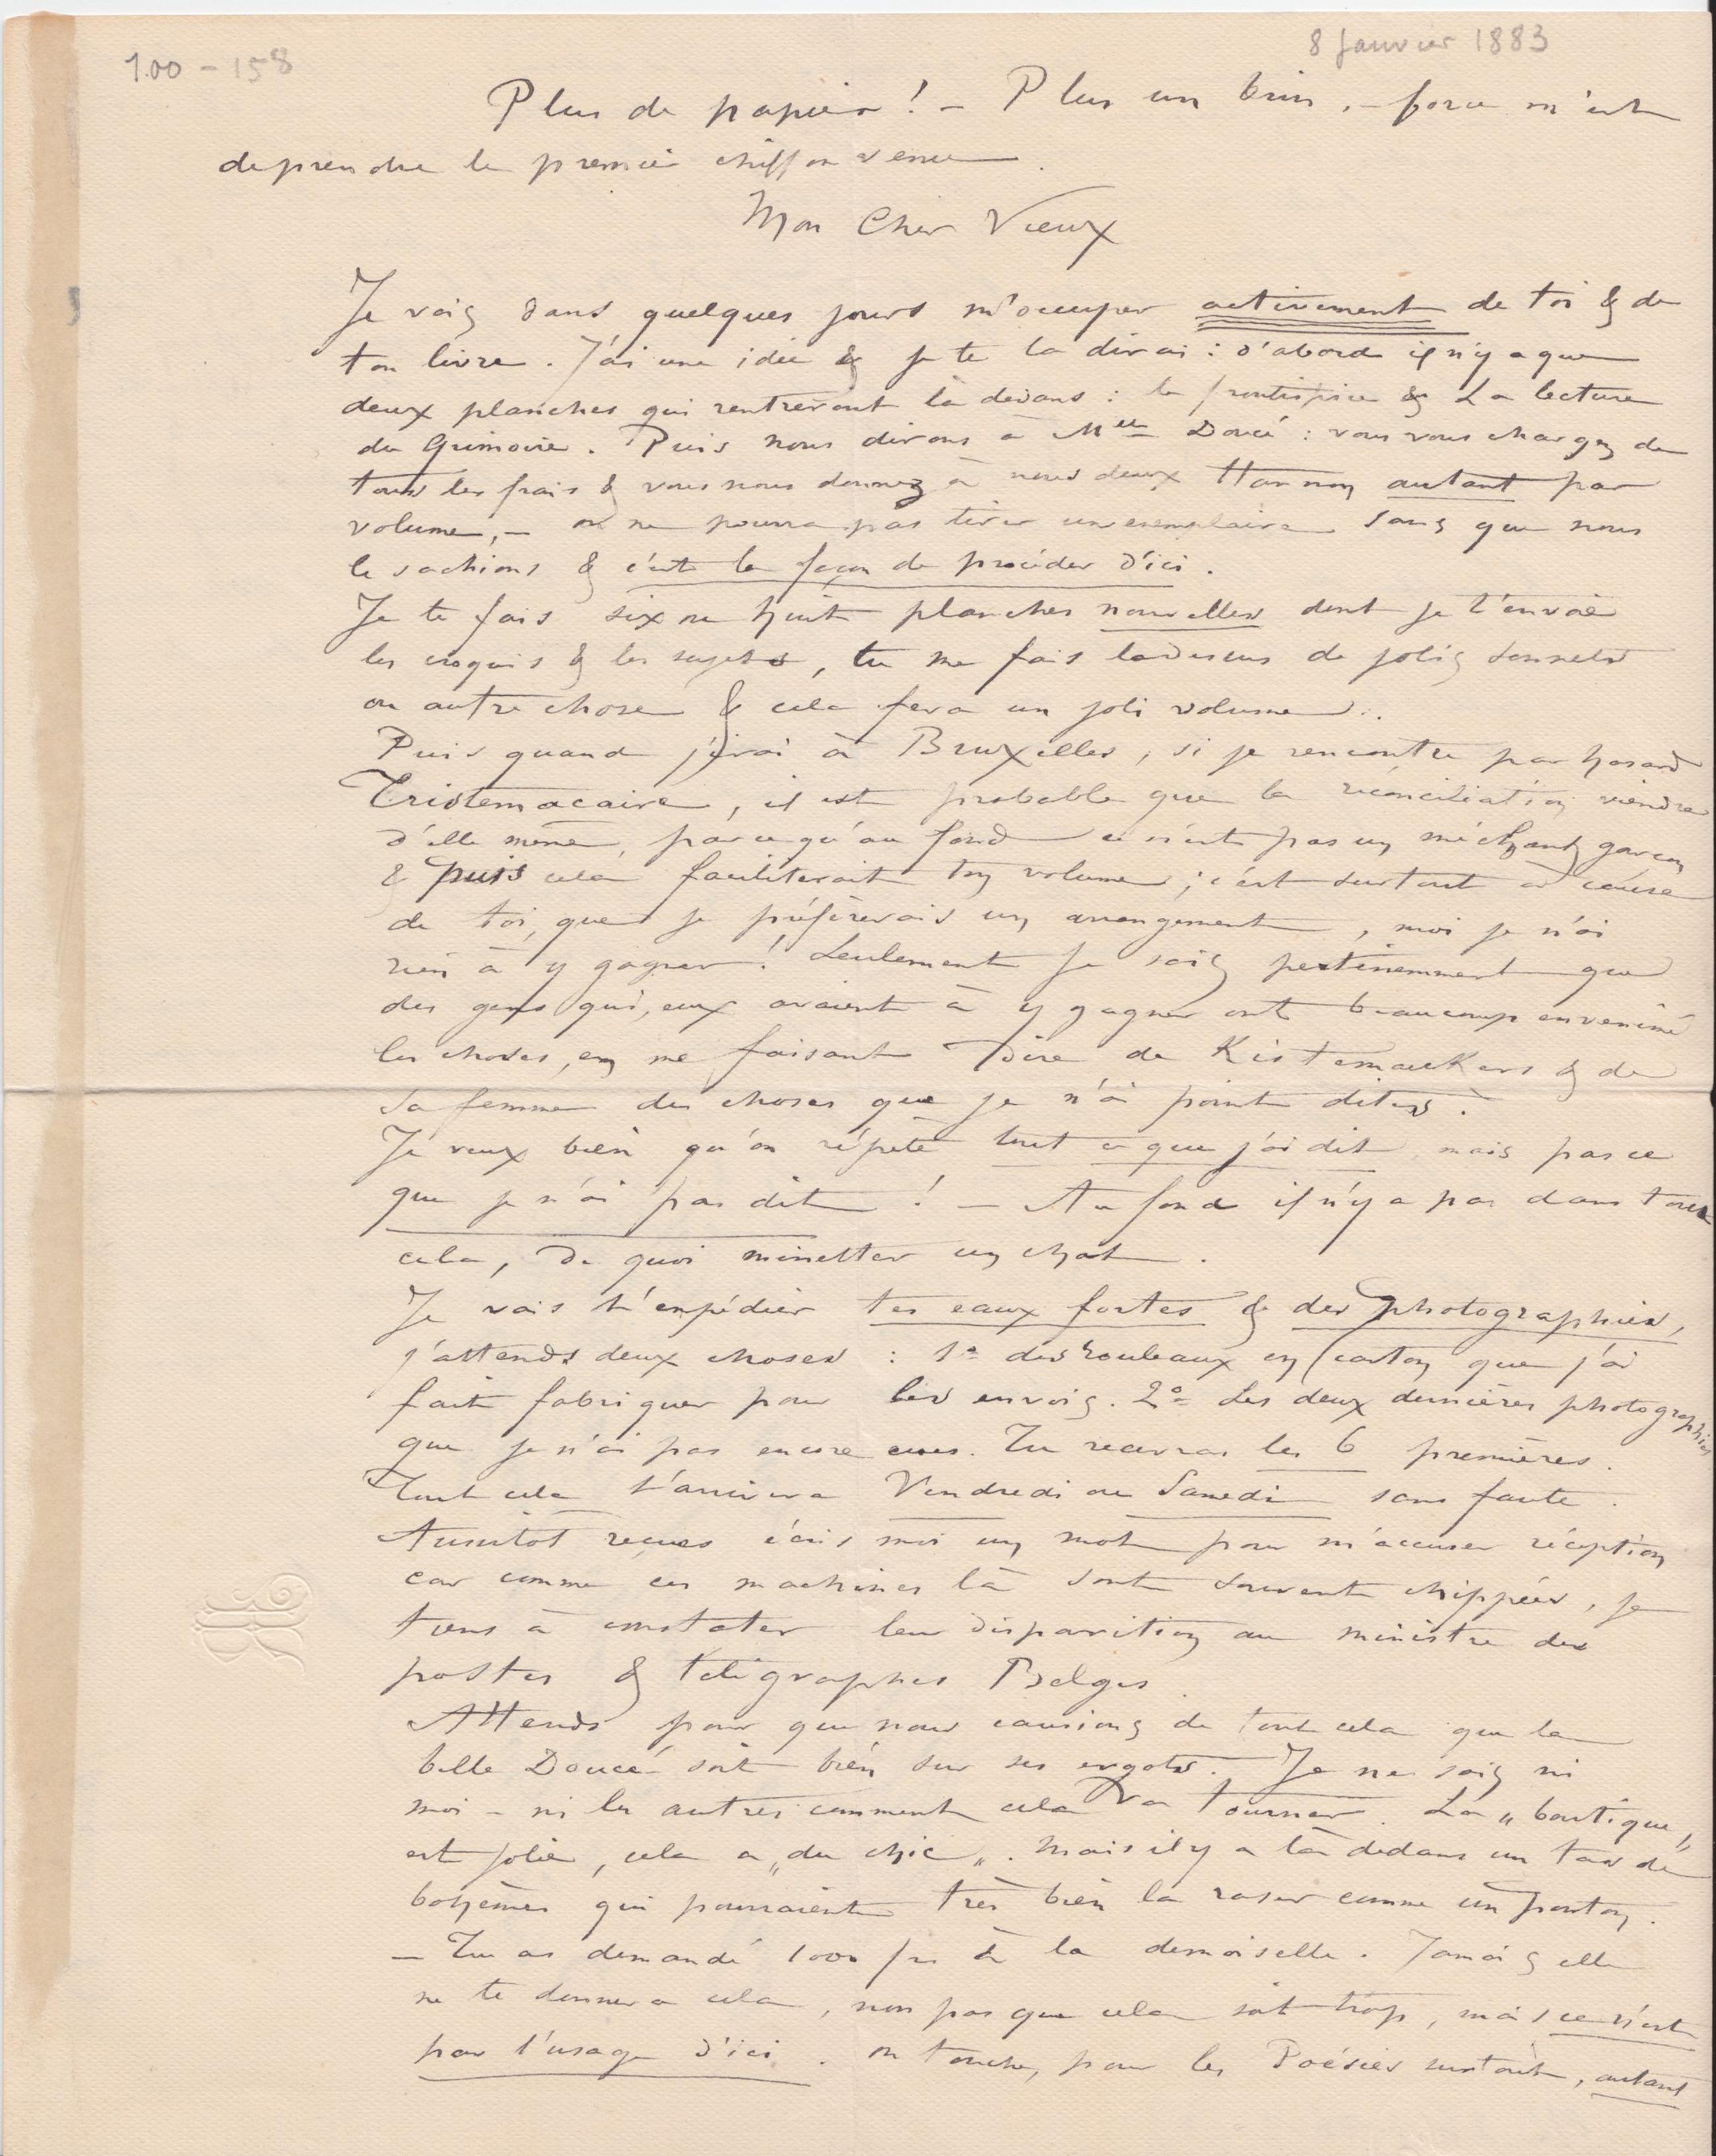 100-158
8 Janvier 1883
Plus de papier ! – Plus un brin, – force m'est
de prendre le premier chiffon venu.
Mon Cher Vieux
Je vais dans quelques jours m'occuper activement de toi & de
ton livre. J'ai une idée & je te la dirai : d'abord il n'y a que
deux planches qui rentreront là dedans : le frontispice & La lecture
du Grimoire. Puis nous dirons à Mlle Doucé : vous vous chargez de
tous les frais & vous nous donnez à nous deux Hannon autant par
volume, – on ne pourra pas tirer un exemplaire sans que nous
le sachions & c'est la façon de procéder d'ici.
Je te fais six ou huit planches nouvelles dont je t'envoie
les croquis & les sujets, tu me fais ladessus de jolis sonnets
ou autre chose & cela fera un joli volume.
Puis quand j'irai à Bruxelles, si je rencontre par hasard
Tristemacaire, il est probable que la réconciliation viendra
d'elle même, parce qu'au fond ce n'est pas un méchant garçon
& puis cela faciliterait ton volume ; c'est surtout à cause
de toi, que je préfèrerais un arrangement, moi je n'ai
rien à y gagner ! Seulement je sais pertinemment que
des gens qui, eux avaient à y gagner ont beaucoup envenimé
les choses, en me faisant dire de Kistemaekers & de
sa femme des choses que je n'ai point dites.
Je veux bien qu'on répète tout ce que j'ai dit, mais pas ce
que je n'ai pas dit ! – Au fond il n'y a pas dans tout
cela, de quoi minetter un chat.
Je vais t'expédier tes eaux fortes & des photographies,
j'attends deux choses : 1º des rouleaux en carton que j'ai
fait fabriquer pour les envois. 2º Les deux dernières photographies
que je n'ai pas encore eues. Tu recevras les 6 premières.
Tout cela t'arrivera Vendredi ou Samedi sans faute.
Aussitôt reçues écris moi un mot pour m'accuser réception
car comme ces machines là sont souvent chippées, je
tiens à constater leur disparition au ministre des
postes & télégraphes Belges.
Attends pour que nous causions de tout cela que la
belle Doucé soit bien sur ses ergots. Je ne sais ni
moi – ni les autres comment cela va tourner. La „ boutique „
est jolie, cela a „ du chic „. Mais il y a là dedans un tas de
bohèmes qui pourraient très bien la raser comme un ponton.
– Tu as demandé 1000 frs à la demoiselle. Jamais elle
ne te donnera cela, non pas que cela soit trop, mais ce n'est
pas l'usage d'ici. on touche, pour les Poésies surtout, autant